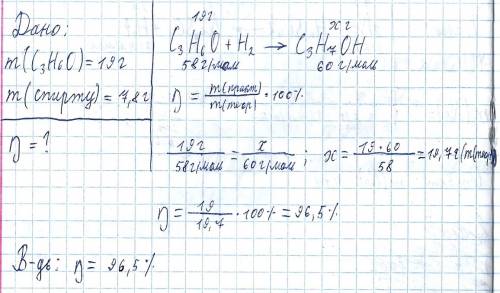 Дано:
m(C₃H₆O)=19г
m(спирту)=7,8г
η=?
19г xг
C₃H₆O+H₂ → C₃H₇OH
58г/моль 60г/моль
η = m(практ)/m(теор) · 100%
19г/58г/моль = x/60г/моль ; x = 19·60/58 = 19,7г (m(теор))
η = 19/19,7 · 100% = 96,5%
В-дь: η = 96,5%